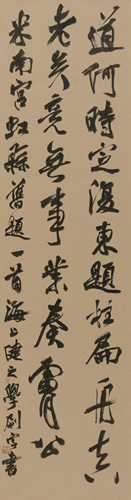 道何時定復東題柱扁舟真
老矣竟無事業奏膚公
米南宮虹縣舊題一首海上建之學劍字書